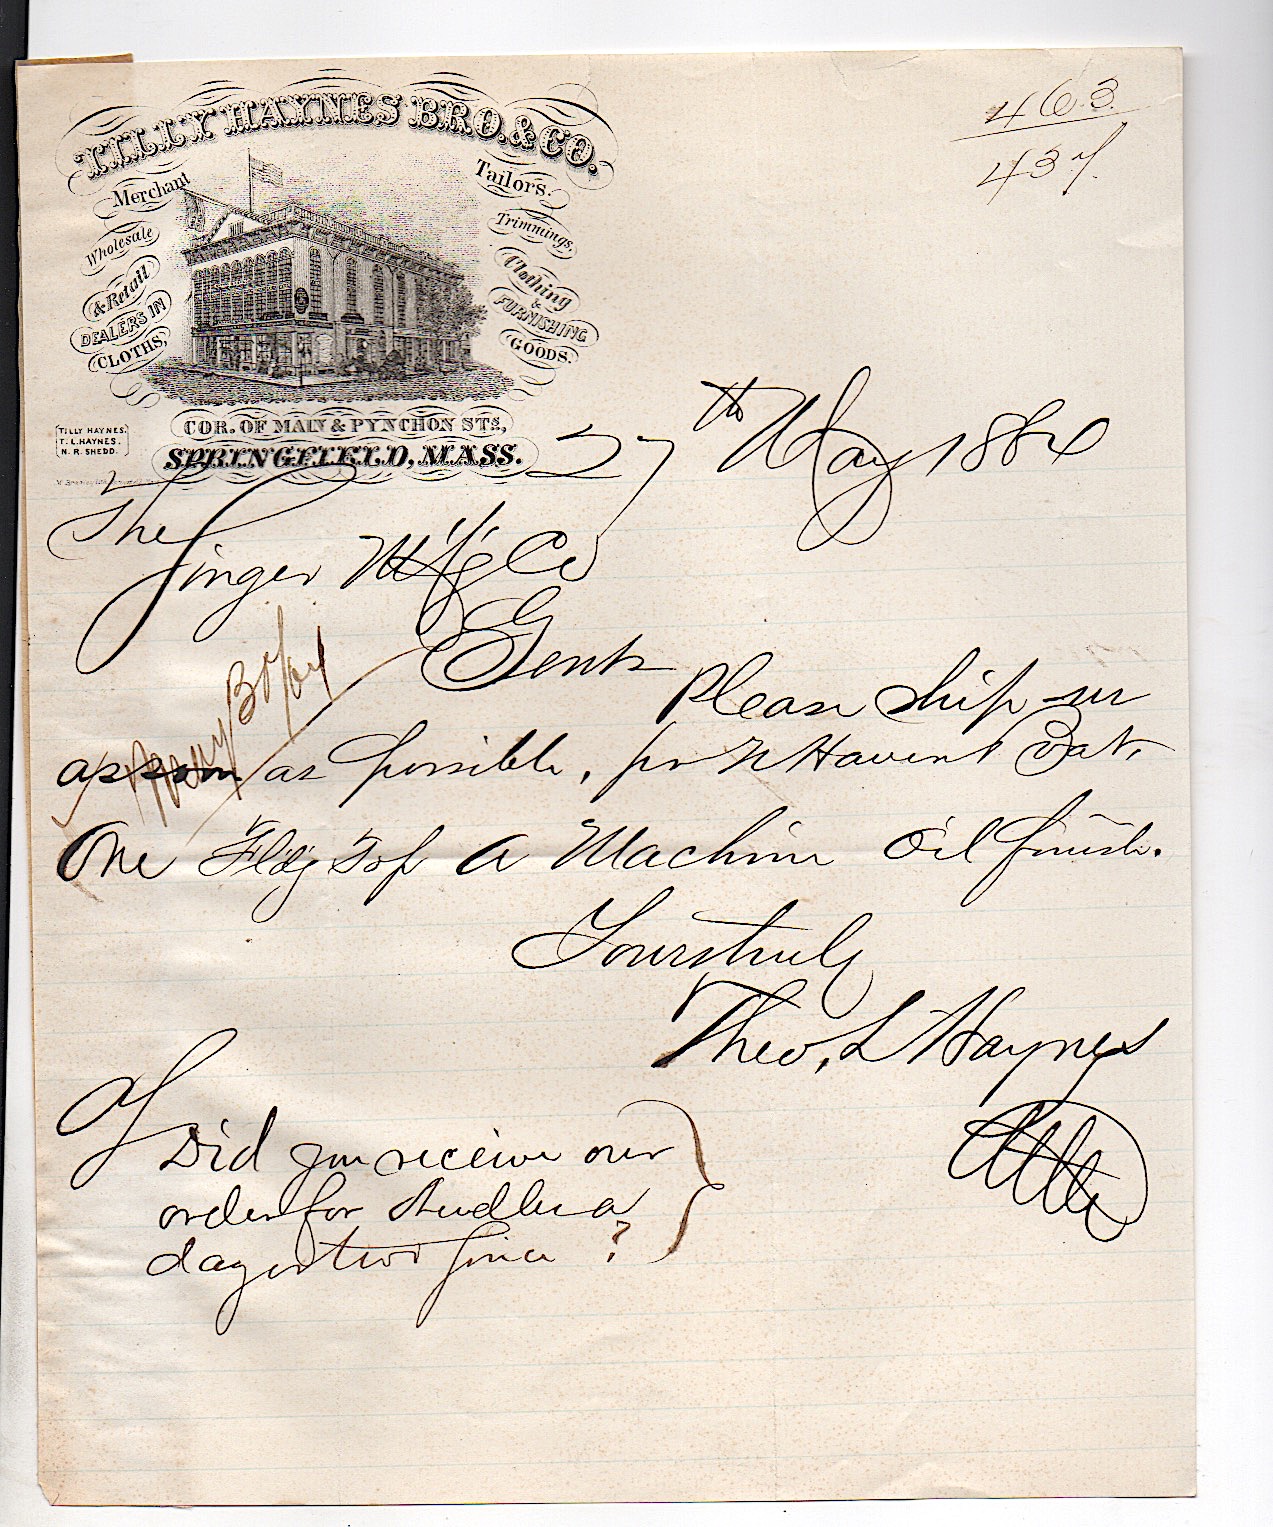 463.
437.
TILLY HAYNES BRO. & CO.
Merchant Tailors.
Wholesale
& Retail
DEALERS IN
CLOTHS,
Trimmings,
Clothing
&
FURNISHING
GOODS.
COR. OF MAIN & PYNCHON STS.,
TILLY HAYNES.
T. L. HAYNES.
N. R. SHEDD.
SPRINGFIELD, MASS. 27th May 1864
The
Singer M'f'g Co
Gents
Please ship us
as soon as possible, pr N Haven Boat,
One Fld'g Top A Machine Oil finish.
Yours truly
Theo. L Haynes
Did you receive our
order for Needles a
day or two since ?